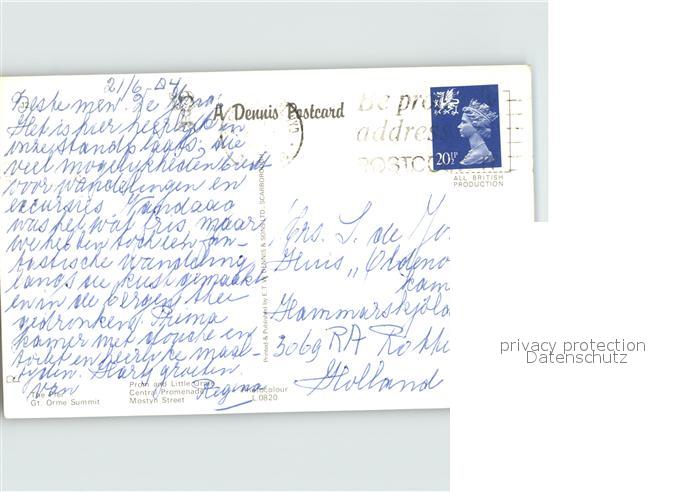 21/6-84
Beste men. De
Het is hier heerlijk in
onze standplaats, die
veel mogelijkheden biedt
voor wandelingen en
excursies. Vandaag
was het wat fris, maar
we hebben toch een fan-
tastische wandeling
langs de kust gemaakt
en in de bergen thee
gedronken. Prima
kamer met douche en
toilet en heerlijke maal-
tijden. Hart. groeten.
van Regina
The
Gt. Orme Summit
Prom and Little Orme
Central Promenade
Mostyn Street
colour
L.0820.
A Dennis Postcard
Printed & Published by E.T.W. DENNIS & SONS LTD. SCARBOROUGH
Be pro
address
POSTCO
20½P
ALL BRITISH
PRODUCTION
Mrs. S. de
Huis „
kam
Hammarskjöld
3069 RA Rotte
Holland
privacy protection
Datenschutz